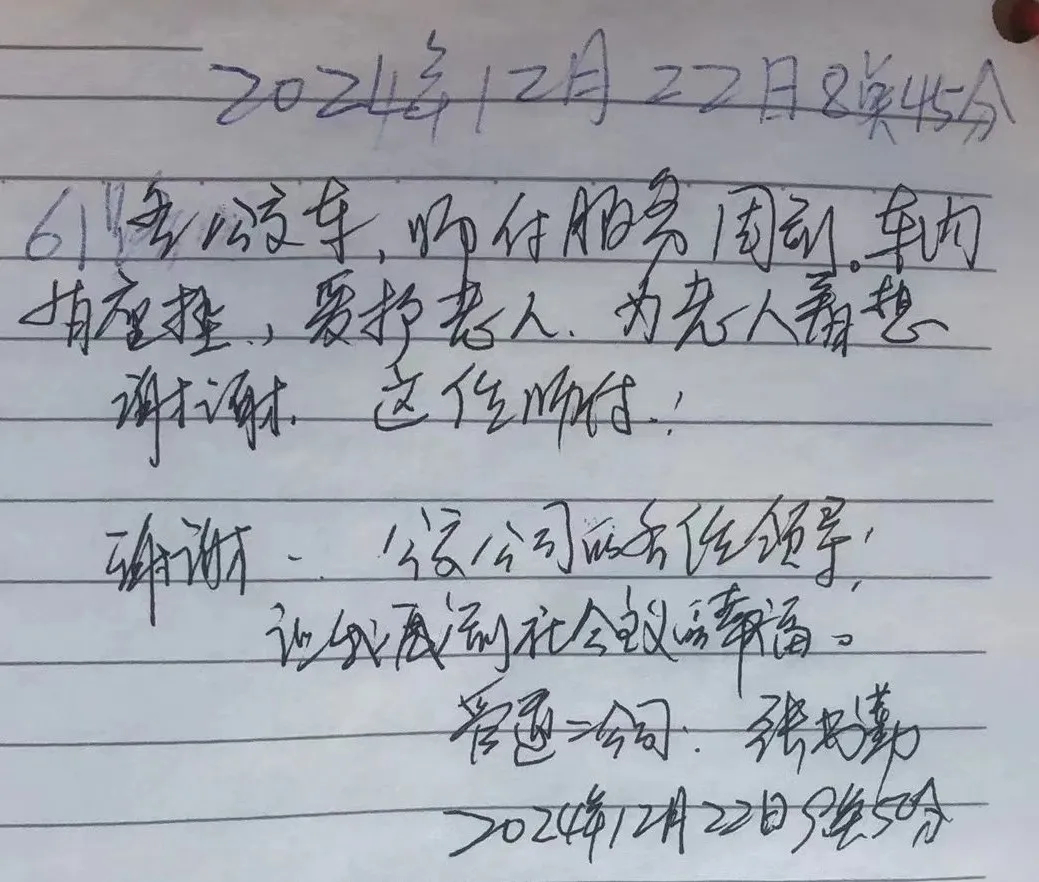 2024年12月22日8点45分
61路公交车，师付服务周到。车内
有座垫，爱护老人.为老人着想
谢谢.这位师付！
谢谢..公交公司的各位领导，
让我感到社会主义的幸福。
管道二公司：张 勤
2024年12月22日9点50分